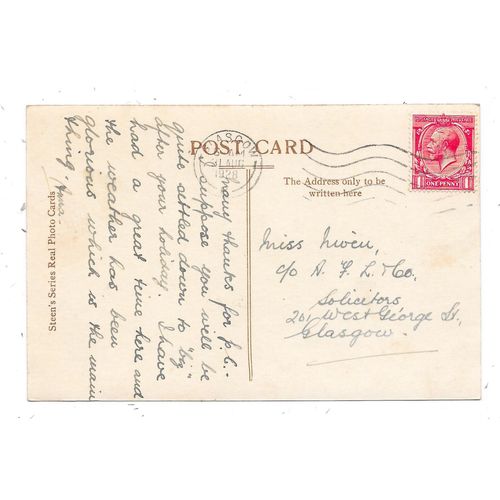 POST CARD
The Address only to be
written here
ONE PENNY
AUG
1928
Many thanks for p.c.-
I suppose you will be
quite settled down to "biz"
after your holiday. I have
had a great time here and
the weather has been
glorious which is the main
thing.
Miss
c/o A. F. L. & Co.
Solicitors
201, West George St,
Glasgow.
Steen's Series Real Photo Cards